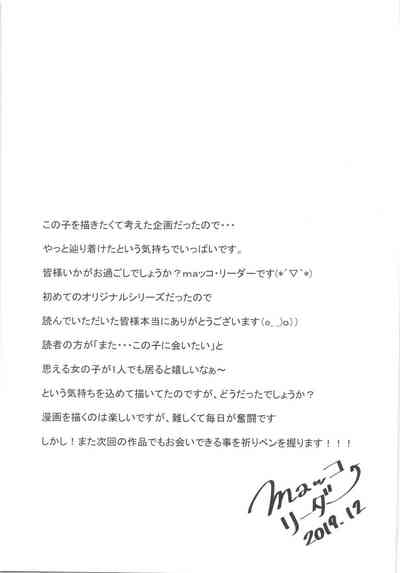 この子を描きたくて考えた企画だったので・・・
やっと辿り着けたという気持ちでいっぱいです。
皆様いかがお過ごしでしょうか？maッコ・リーダーです(*´▽`*)
初めてのオリジナルシリーズだったので
読んでいただいた皆様本当にありがとうございます(o_ _)o))
読者の方が「また・・・この子に会いたい」と
思える女の子が1人でも居ると嬉しいなぁ～
という気持ちを込めて描いてたのですが、どうだったでしょうか？
漫画を描くのは楽しいですが、難しくて毎日が奮闘です
しかし！また次回の作品でもお会いできる事を祈りペンを握ります！！！
maッコ
リーダー
2019.12